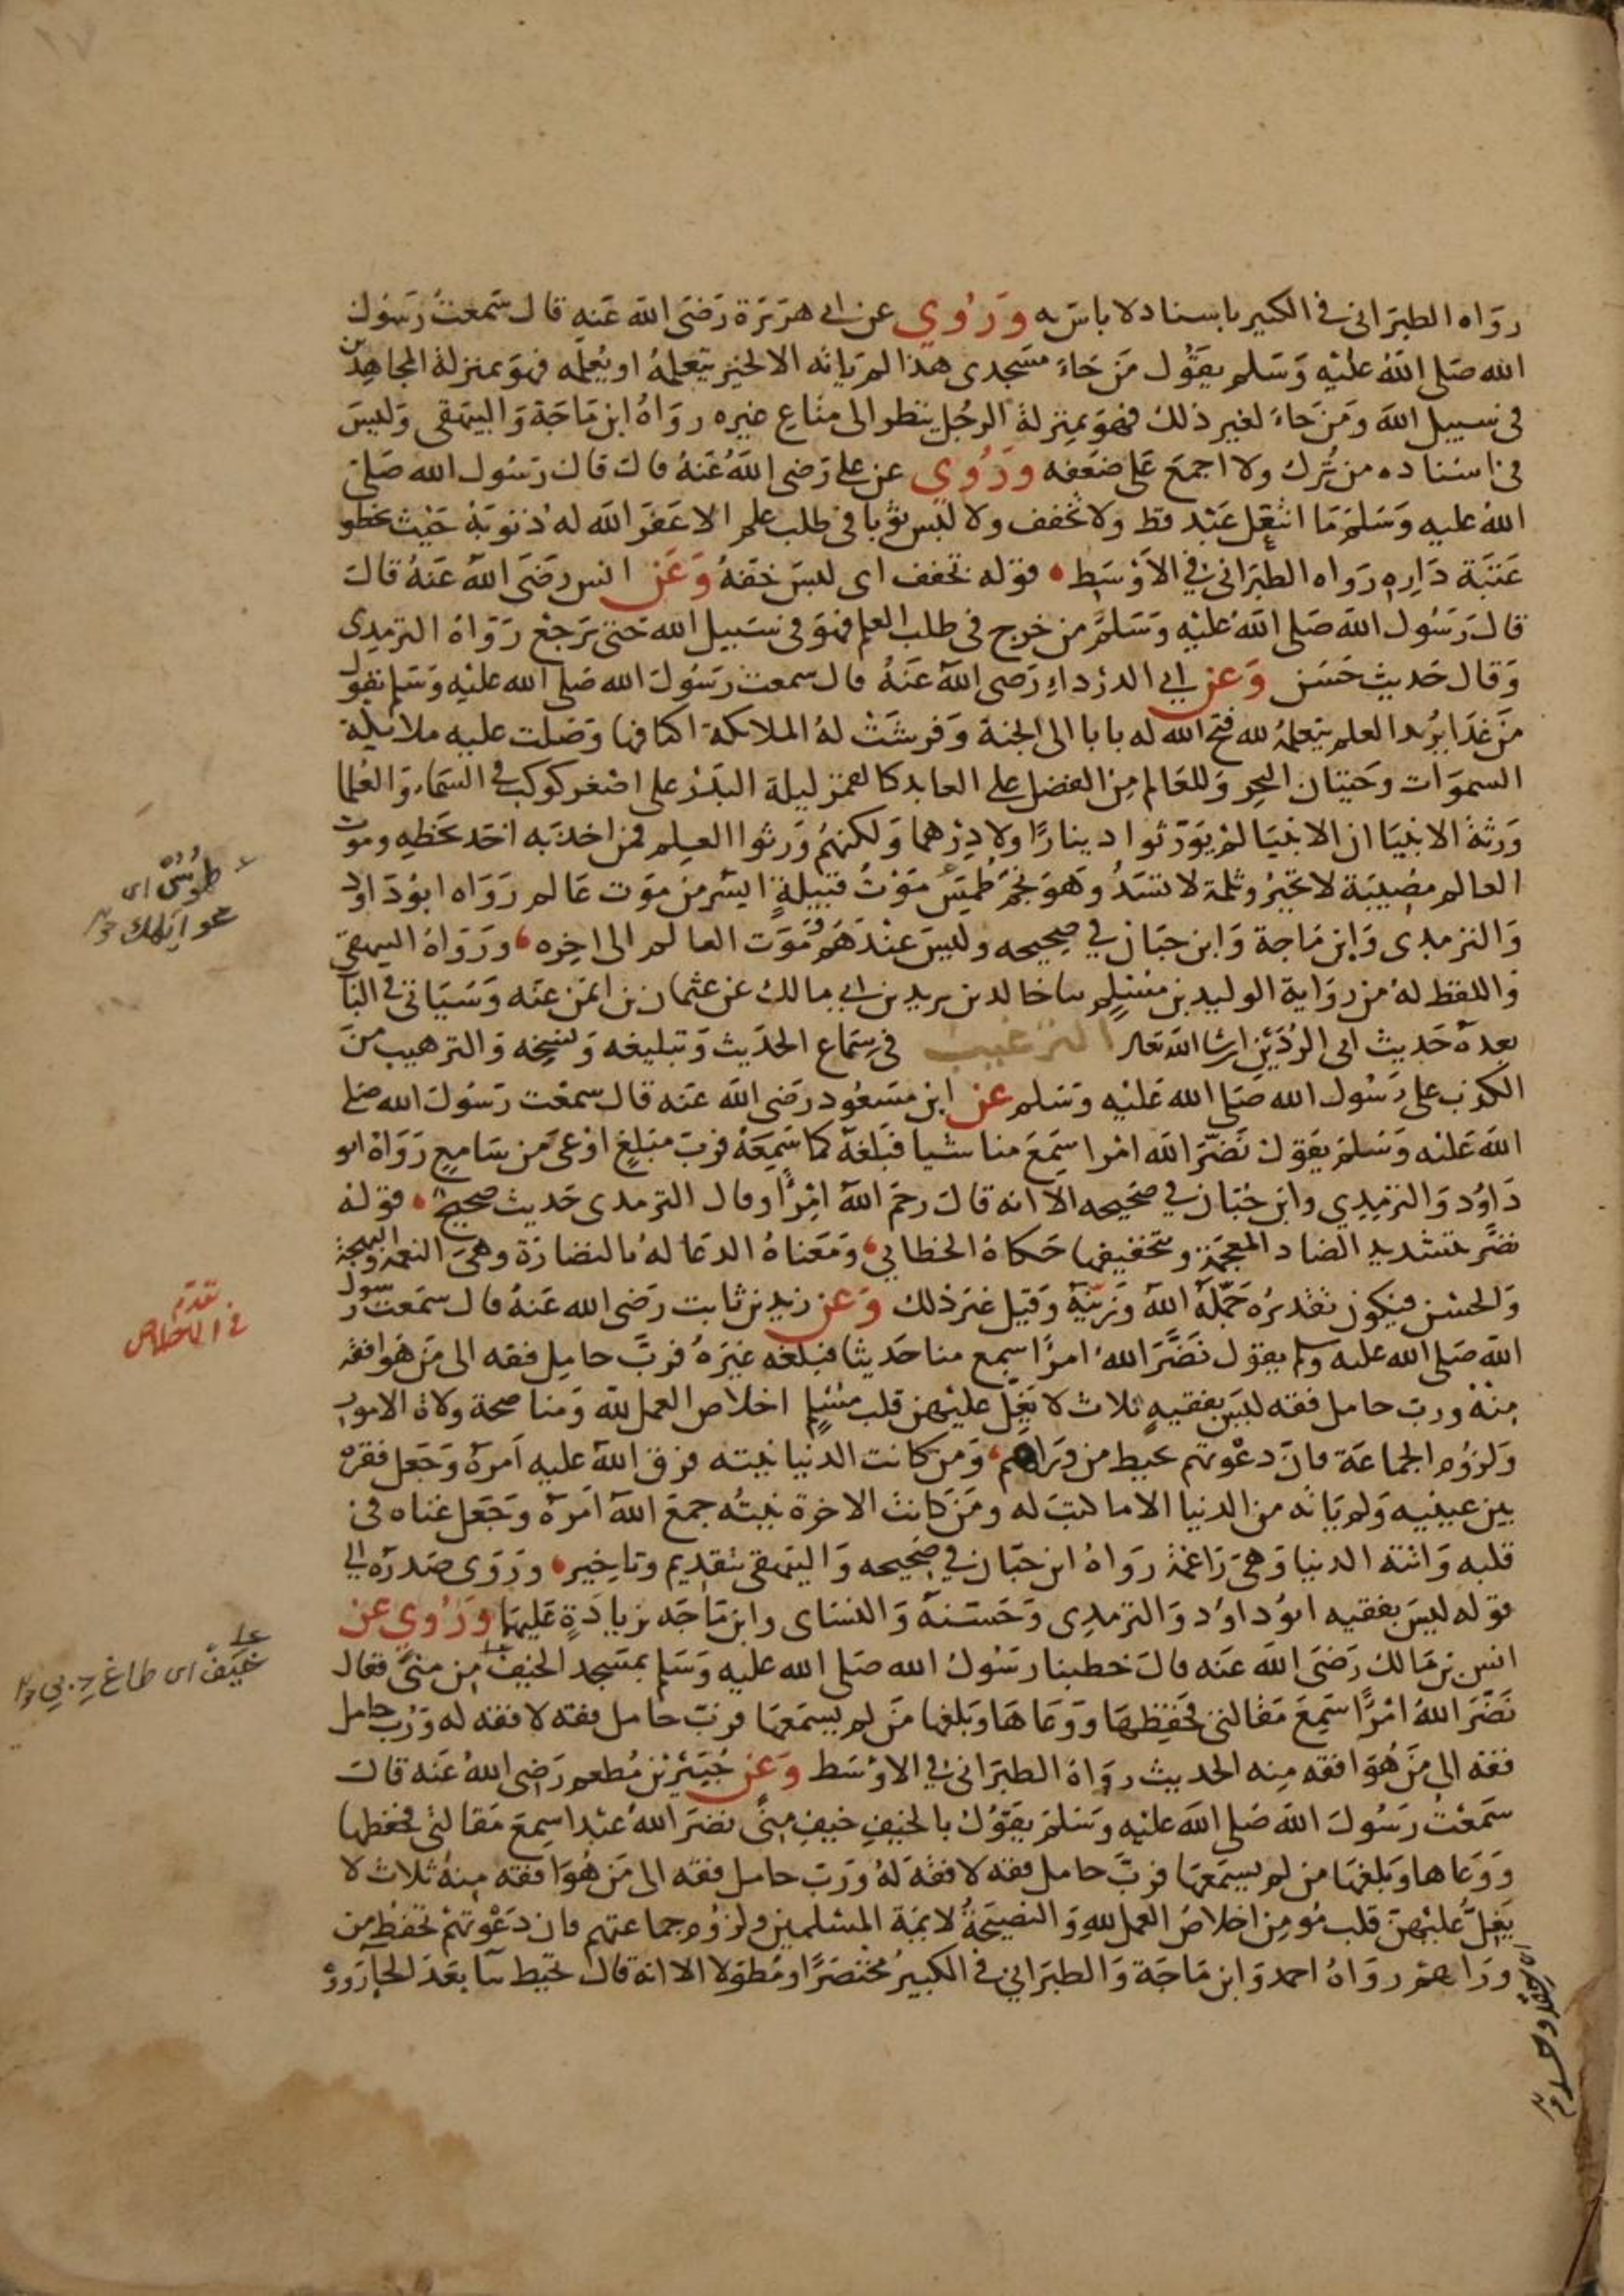 ١٧
رواه الطبراني في الكبير باسناد لا باس به وروي عن ابي هريرة رضى الله عنه قال سمعت رسول
الله صلى الله عليه وسلم يقول من جاء مسجدى هذا لم ياته الا لخير يتعلمه او يعلمه فهو بمنزلة المجاهدين
فى سبيل الله ومن جاء لغير ذلك فهو بمنزلة الرجل ينظر الى متاع غيره رواه ابن ماجة والبيهقى وليس
فى اسناده من ترك ولا اجمع على ضعفه وروي عن على رضى الله عنه قال قال رسول الله صلى
الله عليه وسلم ما انتعل عبد قط ولا تخفف ولا لبس ثوبا فى طلب علم الا غفر الله له ذنوبه حيث يخطو
عتبة داره رواه الطبرانى في الاوسط قوله تخفف اى لبس خفه وعن انس رضى الله عنه قال
قال رسول الله صلى الله عليه وسلم من خرج فى طلب العلم فهو فى سبيل الله حتى يرجع رواه الترمدى
وقال حديث حسن وعن ابي الدرداء رضى الله عنه قال سمعت رسول الله صلى الله عليه وسلم يقول
من غدا يريد العلم يتعلمه لله فتح الله له بابا الى الجنة وفرشت له الملائكة اكنافها وصلت عليه ملائكة
السموات وحيتان البحر وللعالم من الفضل على العابد كالقمر ليلة البدر على اصغر كوكب في السماء والعلما
ورثة الانبيا ان الانبيا لم يورثوا دينارا ولا درهما ولكنهم ورثوا العلم فمن اخذ به اخذ بحظه وموت
العالم مصيبة لا تجبر وثلمة لا تسد وهو نجم طمس موت قبيلة ايسر من موت عالم رواه ابو داود
والترمدى وابن ماجة وابن حبان في صحيحه وليس عندهم موت العالم الى اخره ورواه البيهقى
واللفظ له من رواية الوليد بن مسلم ثنا خالد بن يزيد بن ابي مالك عن عثمان بن ايمن عنه وسياتى في الباب
بعده حديث ابى الردين ان شا الله تعالى الترغيب فى سماع الحديث وتبليغه ونسخه والترهيب من
الكذب على رسول الله صلى الله عليه وسلم عن ابن مسعود رضى الله عنه قال سمعت رسول الله صلى
الله عليه وسلم يقول نضر الله امرا سمع منا شيا فبلغه كما سمعه فرب مبلغ اوعى من سامع رواه ابو
داود والترمدي وابن حبان في صحيحه الا انه قال رحم الله امرأ وقال الترمدى حديث صحيح قوله
نضر بتشديد الضاد المعجمة وتخفيفها حكاه الخطابي ومعناه الدعا له بالنضارة وهى النعمة والبهجة
والحسن فيكون تقديره جمله الله وزينه وقيل غير ذلك وعن زيد بن ثابت رضى الله عنه قال سمعت رسول
الله صلى الله عليه وسلم يقول نضر الله امرأ سمع منا حديثا فبلغه غيره فرب حامل فقه الى من هو افقه
منه ورب حامل فقه ليس بفقيه ثلاث لا يغل عليهن قلب مسلم اخلاص العمل لله ومناصحة ولاة الامور
ولزوم الجماعة فان دعوتهم تحيط من وراهم ومن كانت الدنيا نيته فرق الله عليه امره وجعل فقره
بين عينيه ولم ياته من الدنيا الا ما كتب له ومن كانت الاخرة نيته جمع الله امره وجعل غناه فى
قلبه واتته الدنيا وهى راغمة رواه ابن حبان في صحيحه والبيهقى بتقديم وتاخير وروى صدره الى
قوله ليس بفقيه ابو داود والترمدى وحسنه والنساى وابن ماجه بزيادة عليها وروي عن
انس بن مالك رضى الله عنه قال خطبنا رسول الله صلى الله عليه وسلم بمسجد الخيف من منى فقال
نضر الله امرأ سمع مقالتى فحفظها ووعاها وبلغها من لم يسمعها فرب حامل فقه لا فقه له ورب حامل
فقه الى من هو افقه منه الحديث رواه الطبرانى في الاوسط وعن جبير بن مطعم رضى الله عنه قال
سمعت رسول الله صلى الله عليه وسلم يقول بالخيف خيف منى نضر الله عبدا سمع مقالتى فحفظها
ووعاها وبلغها من لم يسمعها فرب حامل فقه لا فقه له ورب حامل فقه الى من هو افقه منه ثلاث لا
يغل عليهن قلب مومن اخلاص العمل لله والنصيحة لائمة المسلمين ولزوم جماعتهم فان دعوتهم تحفظ من
وراهم رواه احمد وابن ماجة والطبراني في الكبير مختصرا ومطولا الا انه قال تحيط بيا بعد الحا رووه
طمس اى
تقدم
فى الاخلاص
خيف اى طاغ